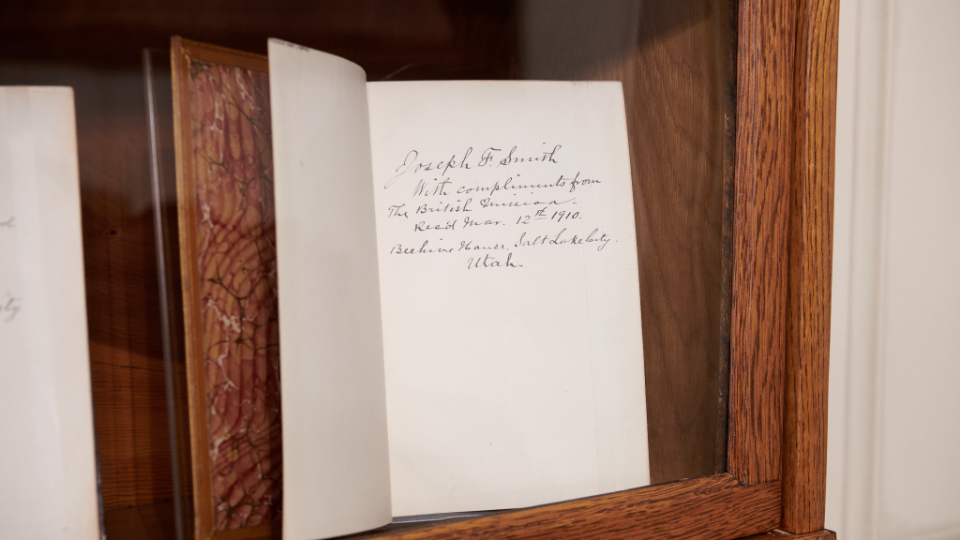 Joseph F. Smith
With compliments from
The British Mission.
Rec'd Mar. 12th 1910.
Beehive House, Salt Lake City.
Utah.